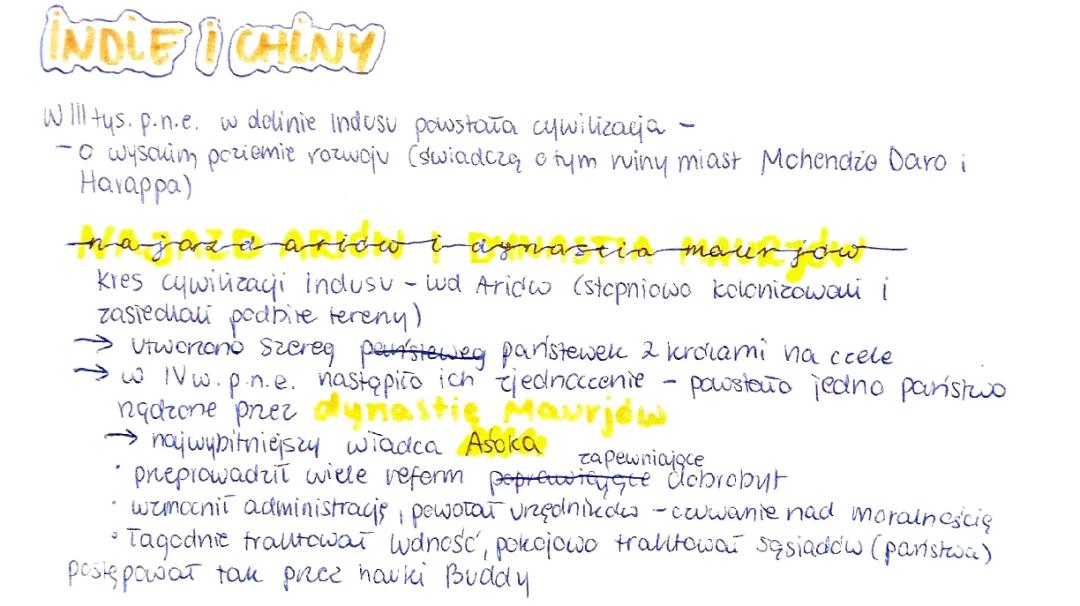 INDIE I CHINY
W III tys. p.n.e. w dolinie Indusu powstała cywilizacja -
- o wysokim poziomie rozwoju (świadczą o tym ruiny miast Mohendżo Daro i
Harappa)
NAJAZD ARIÓW I DYNASTIA MAURJÓW
kres cywilizacji Indusu - lud Ariów (stopniowo kolonizowali i
zasiedlali podbite tereny)
→ utworzono szereg państeweg państewek z królami na czele
→ w IV w. p.n.e. nastąpiło ich zjednoczenie - powstało jedno państwo
rządzone przez dynastię Maurjów
→ najwybitniejszy władca Aśoka
zapewniające
• przeprowadził wiele reform poprawiające dobrobyt
• wzmocnił administrację, powołał urzędników - czuwanie nad moralnością
• łagodnie traktował ludność, pokojowo traktował sąsiadów (państwa)
postępował tak przez nauki Buddy